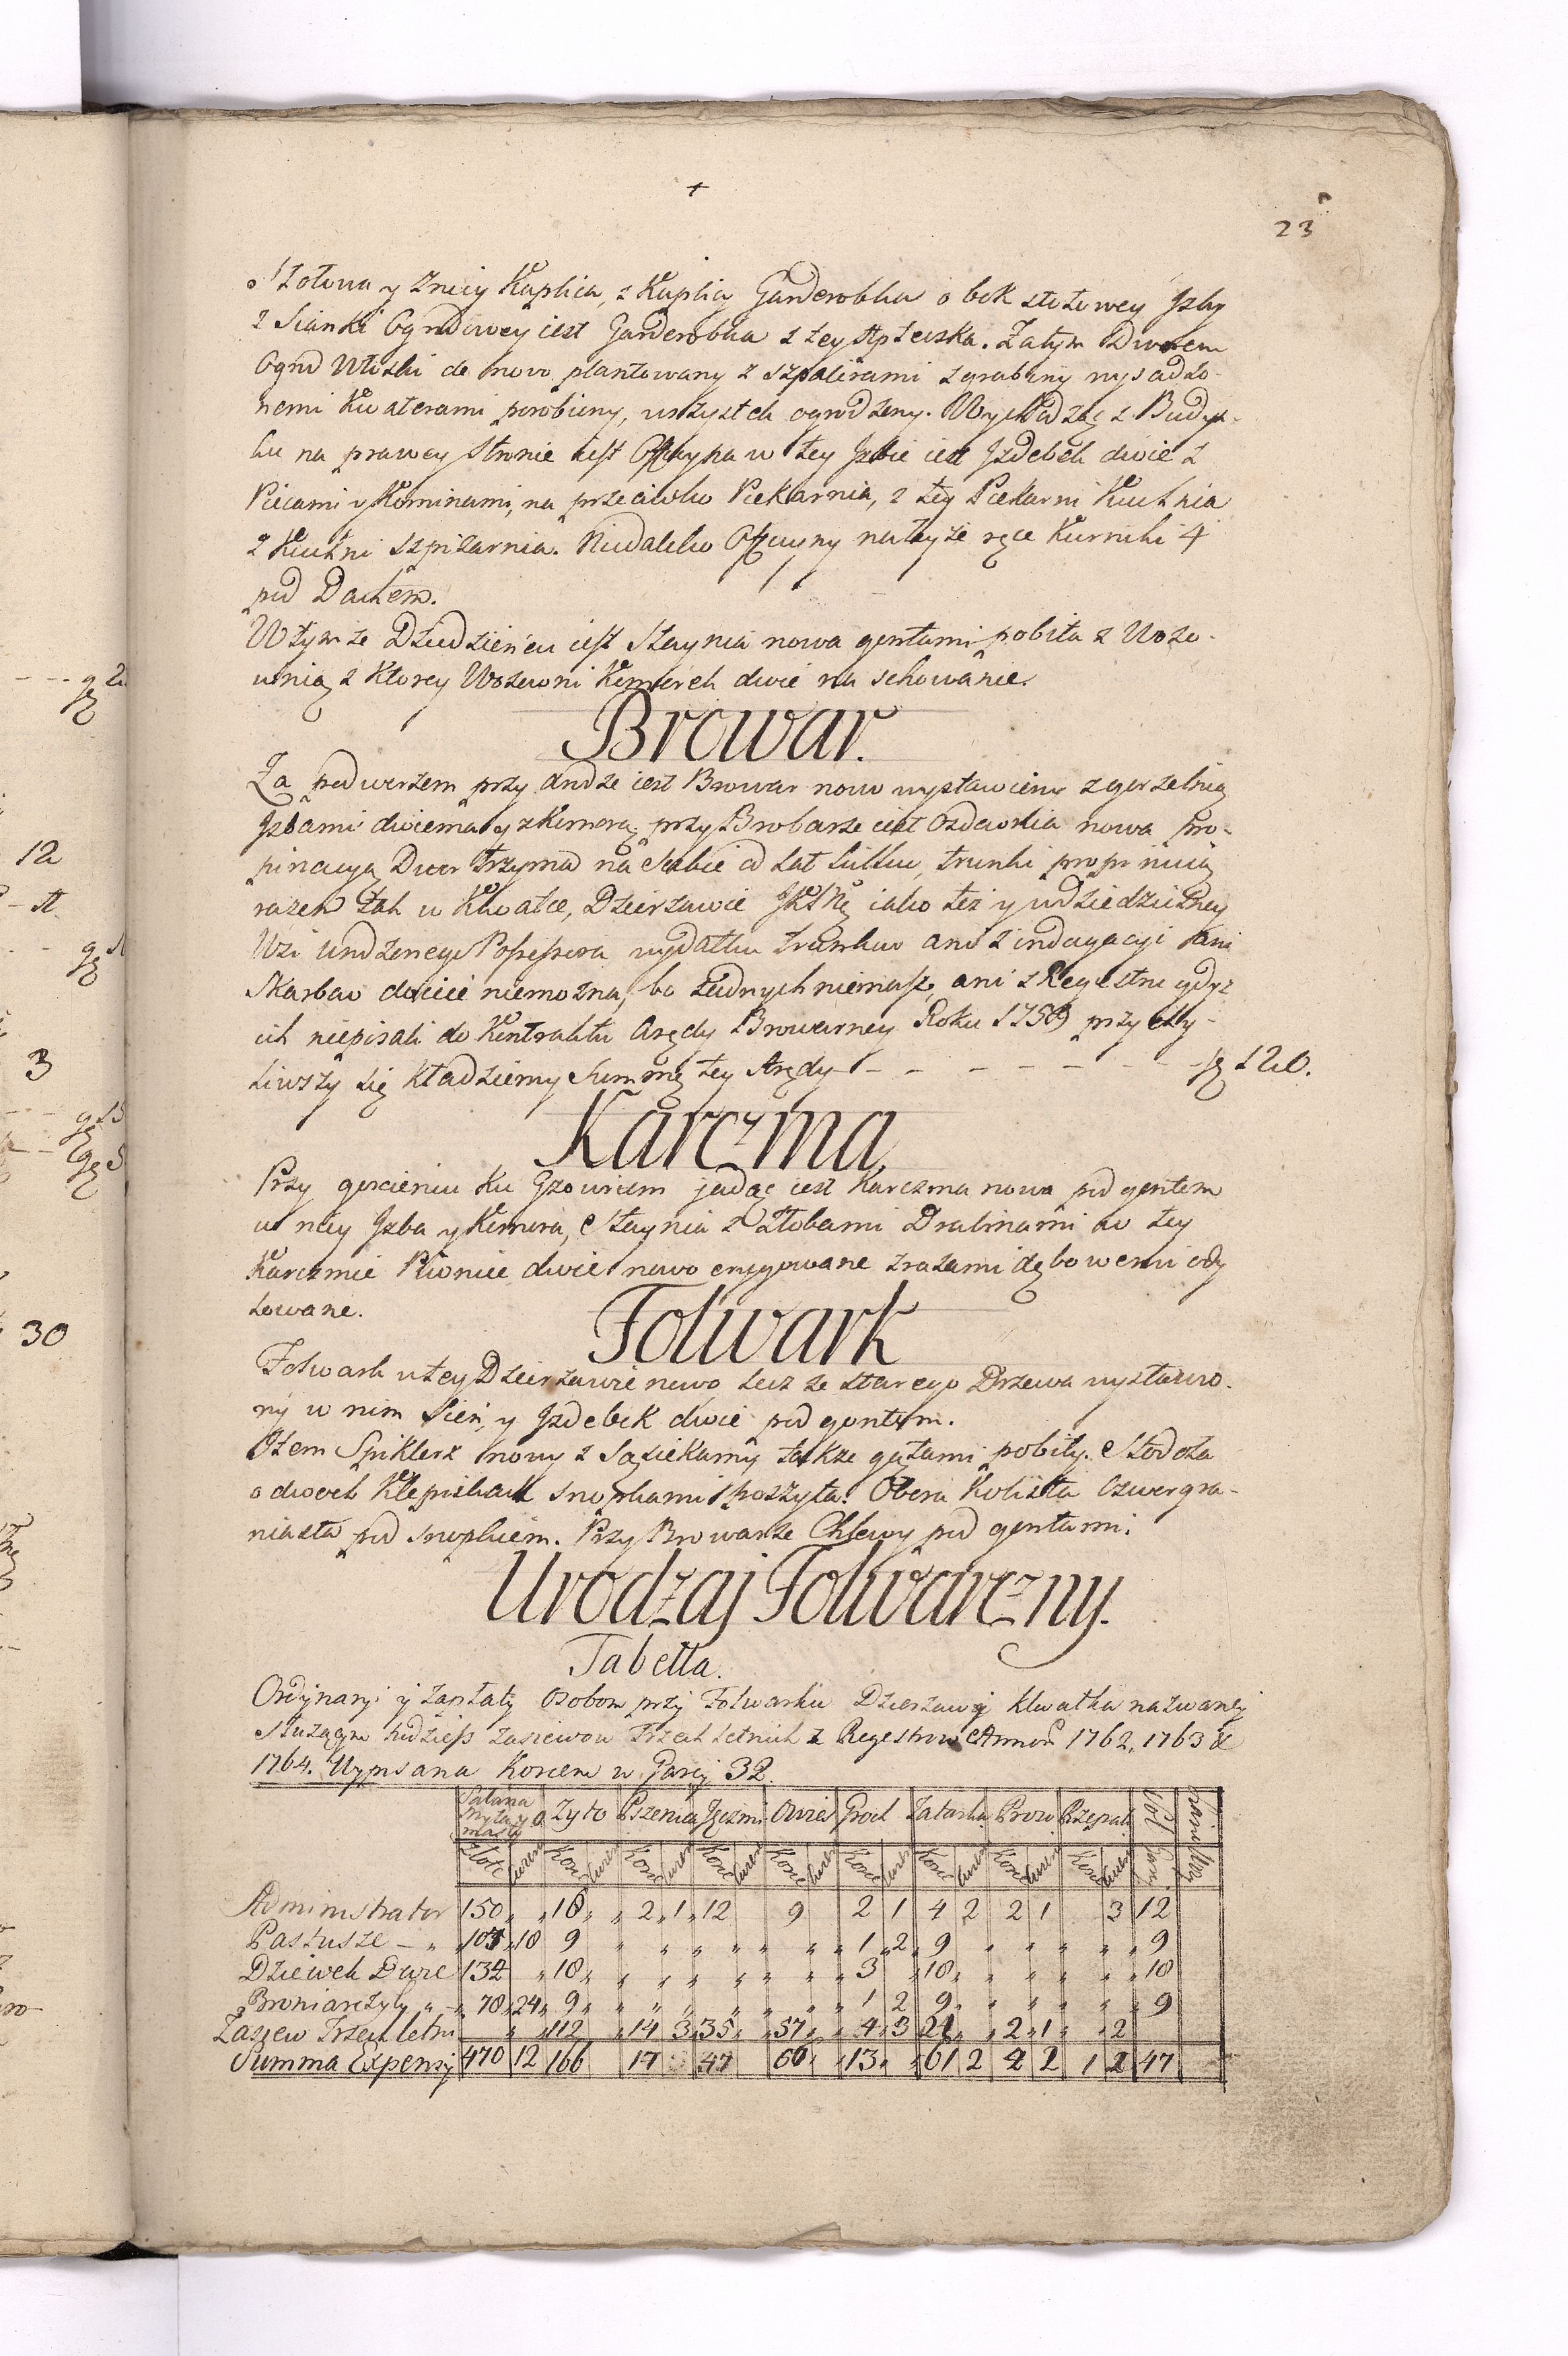 +
23
Stołowa y zniey Kaplica, z Kaplicy Garderobka obok stołowey Jzby
z Scianki Ogrodowey iest Garderobka z tey Apteczka. Zatym Dworem
Ogrod Włoski de novo plantowany z szpalerami z grabiny wysadzo-
nemi Kwaterami porobiony, wszystek ogrodzony. Wychodząc z Budyn-
ku na prawey stronie iest Oficyna w tey Jzbie iest Jzdebek dwie z
Piecami y Kominami, na przeciwko Piekarnia, z tey Piekarni Kuchnia
z Kuchni szpizarnia. Niedaleko Oficyny na teyże ręce Kurniki 4
pod Dachem.
W tymże Dziedzieńcu iest Staynia nowa gontami pobita z Wozo-
wnią z ktorey Wozowni Komorek dwie na schowanie.
Browar.
Za podworzem przy drodze iest Browar nowo wystawiony z gorzelnią
Jzbami dwiema y z Komorą, przy Browarze iest Ozdownia nowa pro-
pinacyą Dwor trzyma na siebie od lat kilku, trunki propinuią
razem tak w Kwatce, Dzierzawie JKMci iako też y w dziedziczney
Wsi urodzonego Possessora wydatku trunkow ani z indagacyi ani
Skarbow dociec niemozna, bo żadnych niemasz, ani z Regestru gdyż
ich niepisali do Kontraktu Arędy Browarney Roku 1759 przychy-
liwszy się kładziemy Summę tey Arędy - - - - - - - fl 120.
Karczma
Przy goscieniu ku Gzowicom jadąc iest Karczma nowa pod gontem
w niey Jzba y Komora, Staynia z Złobami Drabinami w tey
Karczmie Piwnice dwie nowo erygowane zrazami dębowemi cdy
lowane.
Folwark
Folwark w tey Dzierzawie nowo lecz ze starego Drzewa wystawio-
ny w nim Sień, y Jzdebek dwie pod gontem.
Item Spiklerz nowy z Sąsiekamy także gątami pobity. Stodoła
o dwoch Klepiskach snopkami poszyta. Obora Kolista Czworogra-
niasta pod snopkiem. Przy Browarze Chlewy pod gontami.
Urodzaj Folwarczny.
Tabella.
Ordynaryi y zapłaty Osobom przy Folwarku Dzierzawy Kwatka nazwaney
służącym tudziesz zasiewow Trzech letnich z Regestrow Annor 1762, 1763 &
1764. Wypisana Korcem w Garcy 32.
Zyto Pszenica Jęczmi Owies Groch Tatarka Proso Rzepak Sol
Administrator 150 „ „ 18 „ „ 2 „ 1 „ 12 9 2 1 4 2 2 1 3 12
Pastusze — „ 107 „ 18 9 „ „ „ „ „ „ „ 1 „ 2 „ 9 „ „ „ „ „ 9
Dziewek Dwie 134 „ 18 „ „ „ „ „ „ „ „ 3 „ 18 „ „ „ „ „ 18
Broniarczyk „ 78 „ 24 „ 9 „ „ „ „ „ „ „ „ 1 2 9 „ „ „ „ „ 9
Zasiew Trzech letni „ „ 112 „ 14 „ 3 „ 35 „ „ 57 „ „ 4 „ 3 21 „ „ 2 „ 1 „ „ 2
Summa Expensy 470 12 166 17 47 66 „ 13 „ „ 61 2 4 2 1 2 47